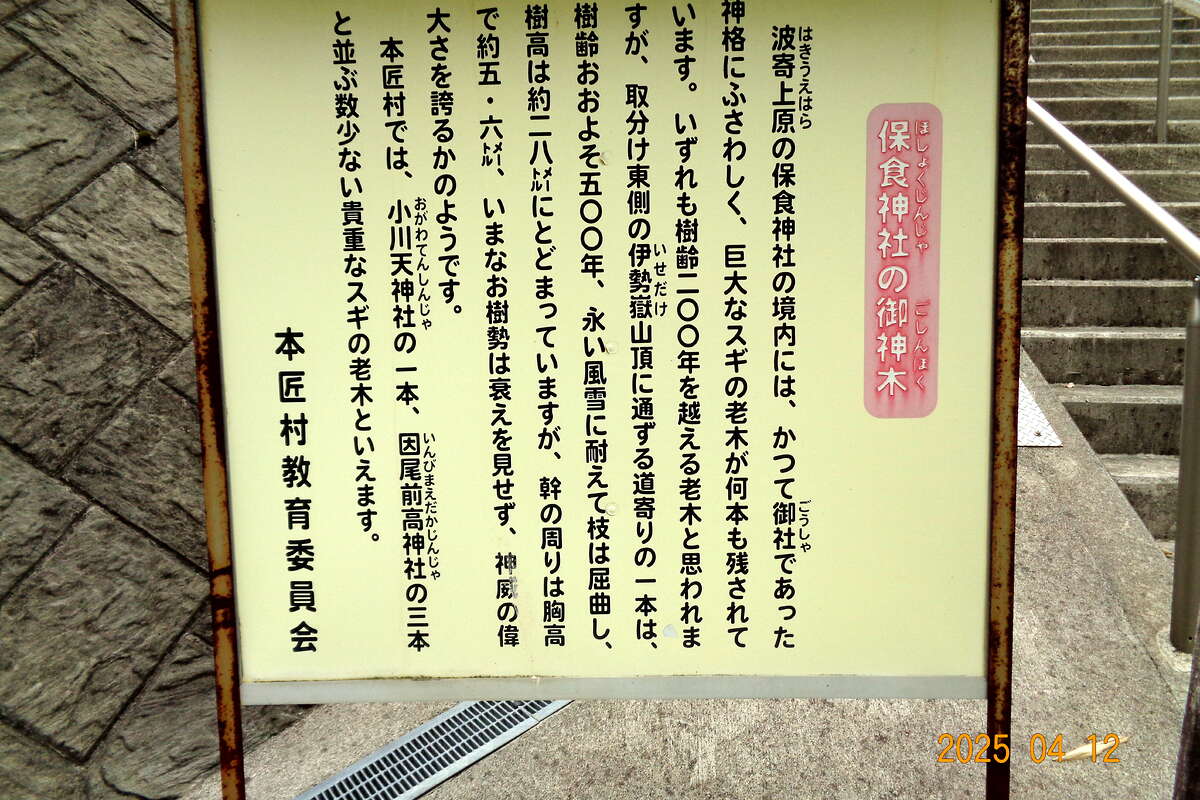 保食神社の御神木
ほしょくじんじゃ
ごしんぼく
波寄上原の保食神社の境内には、かつて御社であった
はきうえはら
ごうしゃ
神格にふさわしく、巨大なスギの老木が何本も残されて
います。いずれも樹齢二〇〇年を越える老木と思われま
すが、取分け東側の伊勢嶽山頂に通ずる道寄りの一本は、
いせだけ
樹齢おおよそ五〇〇年、永い風雪に耐えて枝は屈曲し、
樹高は約二八㍍にとどまっていますが、幹の周りは胸高
で約五・六㍍、いまなお樹勢は衰えを見せず、神威の偉
大さを誇るかのようです。
本匠村では、小川天神社の一本、因尾前高神社の三本
おがわてんしんじゃ
いんびまえだかじんじゃ
と並ぶ数少ない貴重なスギの老木といえます。
本匠村教育委員会
2025 04 12